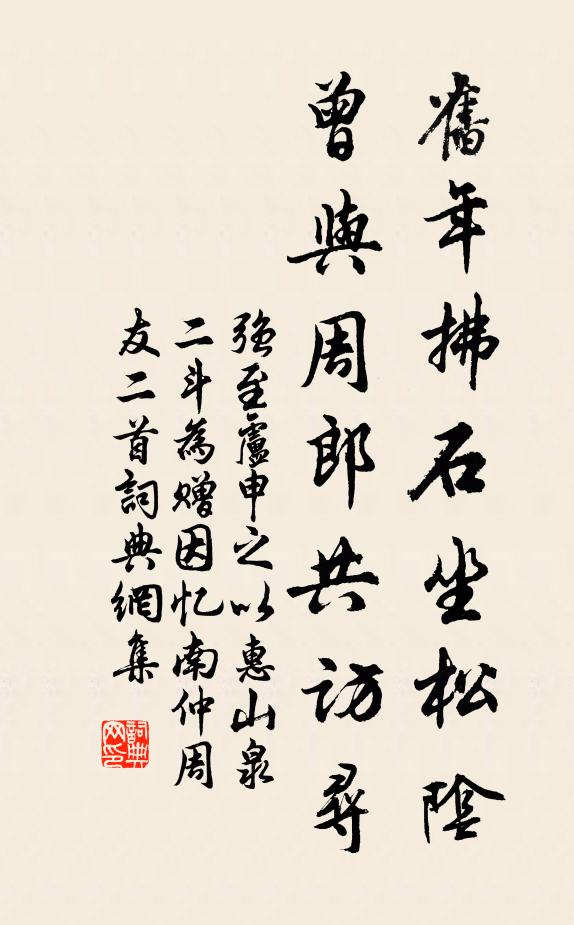 舊年拂石坐松陰
曾與周郎共訪尋
強至盧申之以惠山泉
二斗為贈因忆南仲周
友二首詞典網集
詞典网印